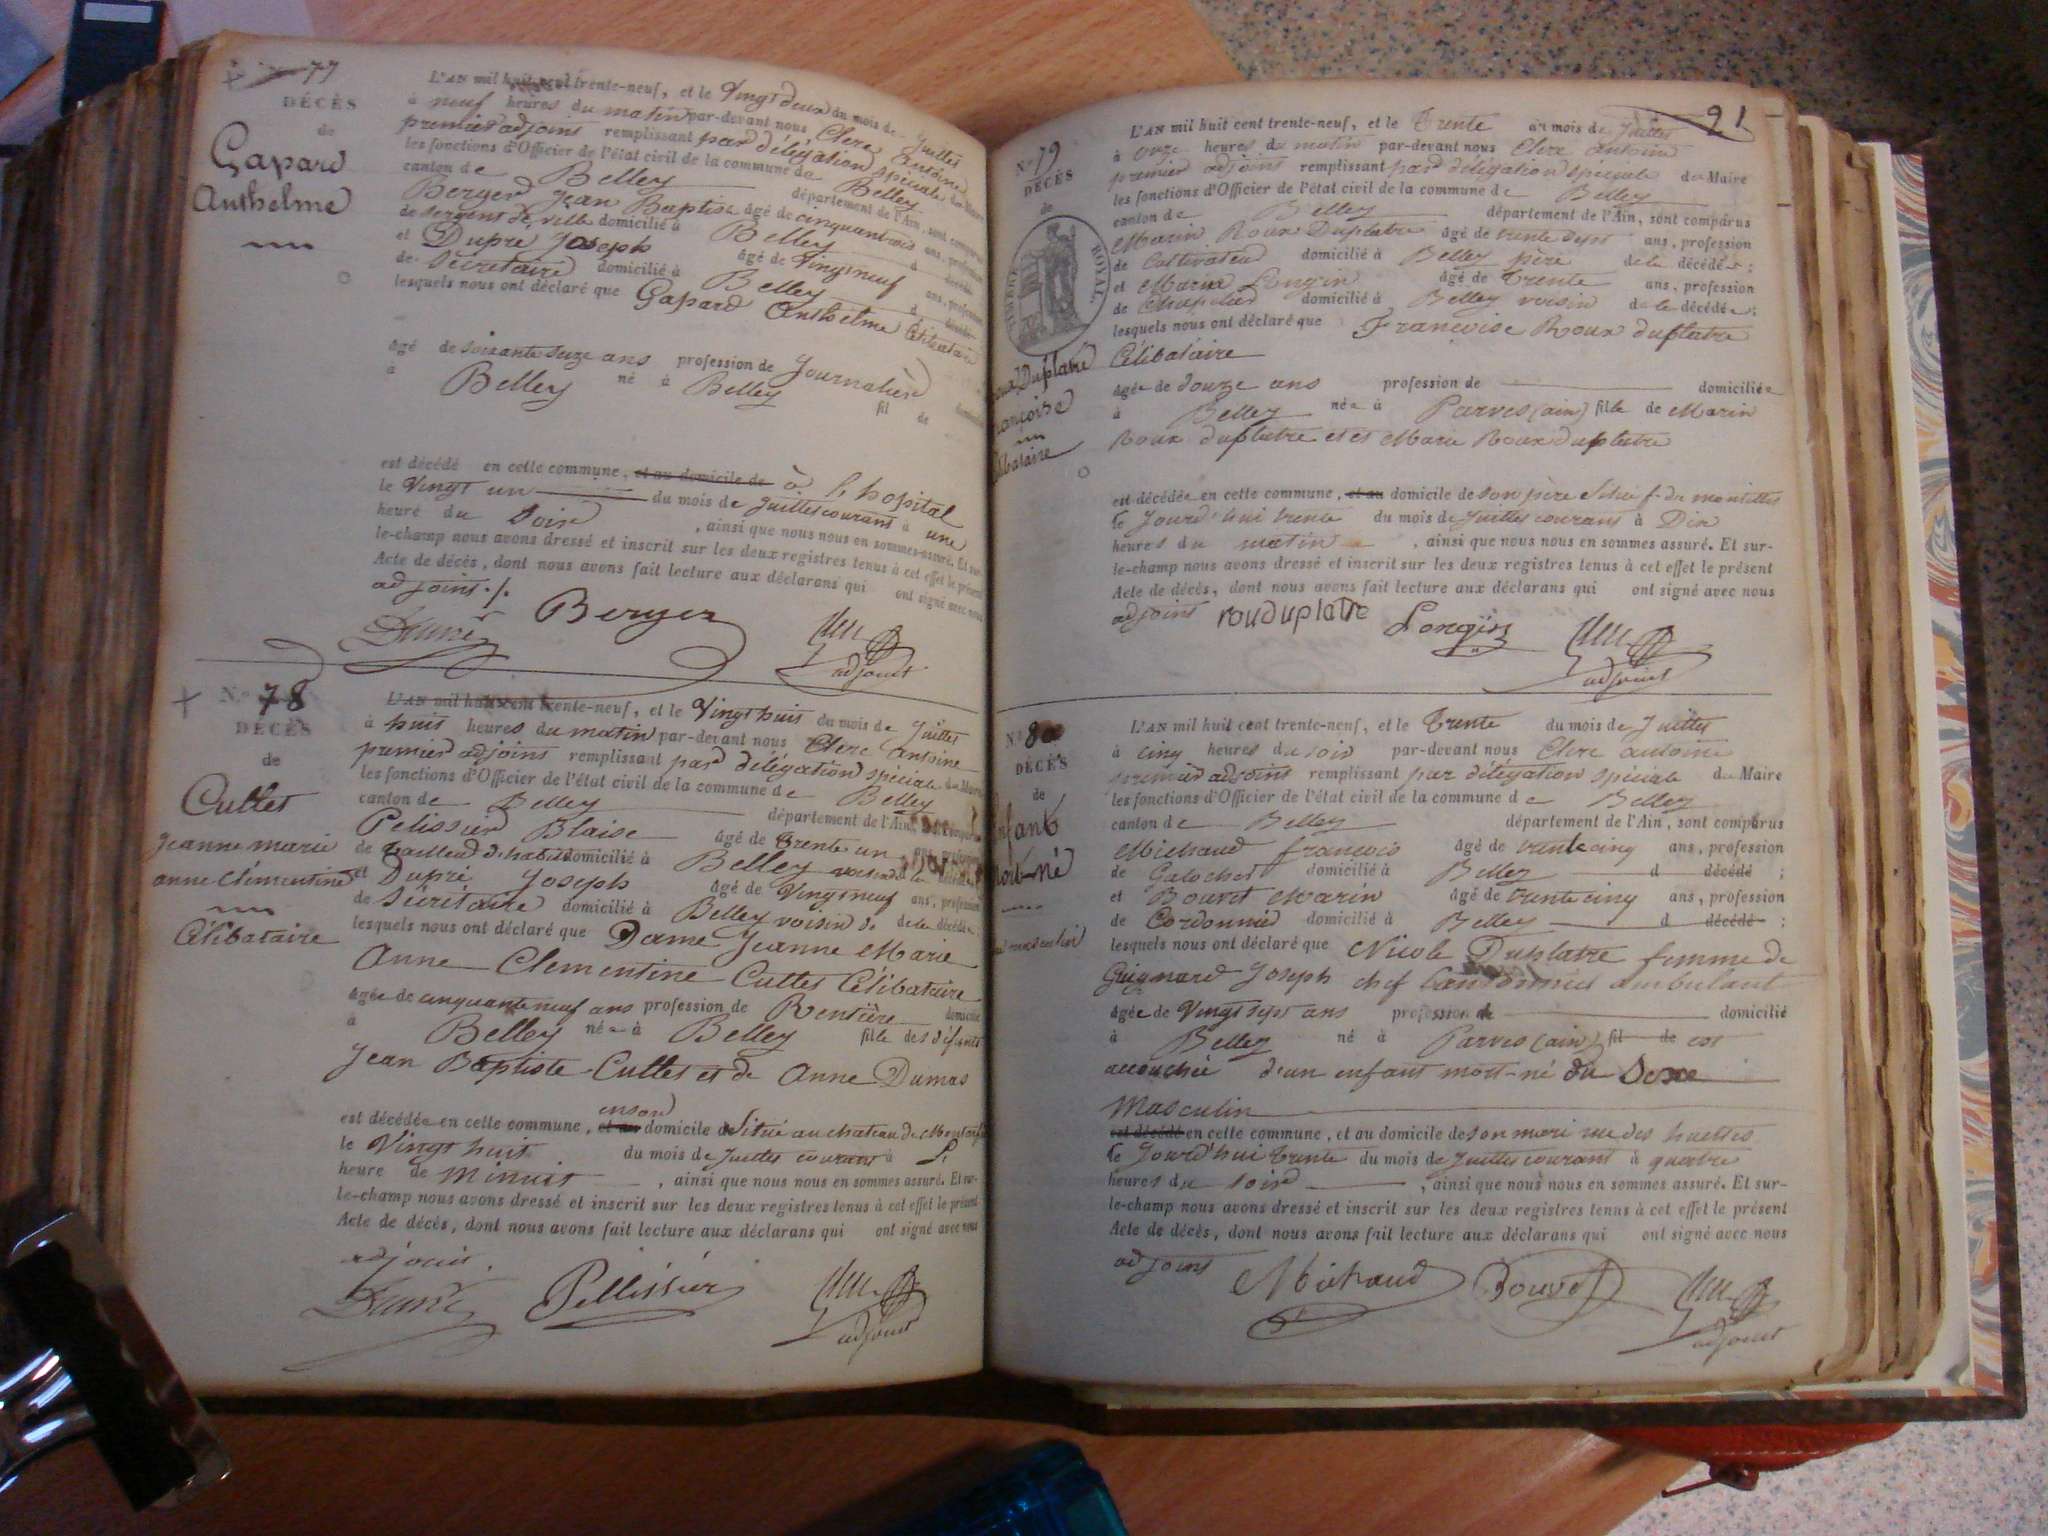 77
DÉCÈS
de
Gapard
Anthelme
L'AN mil huit cent trente-neuf, et le Vingt deux du mois de Juillet
à neuf heures du matin par-devant nous Clerc antoine
premier adjoint remplissant par délégation spéciale du Maire
les fonctions d'Officier de l'état civil de la commune de Belley
canton de Belley département de l'Ain, sont comparus
Berger Jean Baptiste âgé de cinquante ans, profession
de sergent de ville domicilié à Belley d décédé
et Dupré Joseph âgé de Vingt neuf ans, profession
de Sécrétaire domicilié à Belley d décédé
lesquels nous ont déclaré que Gapard Anthelme Célibataire
âgé de soixante seize ans profession de Journalier domicilié
à Belley né à Belley fil de
est décédé en cette commune, et au domicile de à l'hopital
le Vingt un du mois de Juillet courant à une
heure du Soir, ainsi que nous nous en sommes assuré. Et sur-
le-champ nous avons dressé et inscrit sur les deux registres tenus à cet effet le présent
Acte de décès, dont nous avons fait lecture aux déclarans qui ont signé avec nous
adjoint ./.
Dupré Berger
adjoint
N° 78
DÉCÈS
de
Cullet
Jeanne marie
anne Clémentine
Célibataire
L'AN mil huit cent trente-neuf, et le Vingt huit du mois de Juillet
à huit heures du matin par-devant nous Clerc antoine
premier adjoint remplissant par délégation spéciale du Maire
les fonctions d'Officier de l'état civil de la commune de Belley
canton de Belley département de l'Ain, sont comparus
Pelissier Blaise âgé de trente un ans, profession
de tailleur d'habits domicilié à Belley voisin de la décédée
et Dupré Joseph âgé de Vingt neuf ans, profession
de Sécrétaire domicilié à Belley voisin de de la décédée
lesquels nous ont déclaré que Dame Jeanne Marie
Anne Clementine Cullet Célibataire
âgée de cinquante neuf ans profession de Rentière domicilié
à Belley née à Belley fille des défunts
Jean Baptiste Cullet et de Anne Dumas
en son
est décédée en cette commune, et au domicile Situé au chateau de
le Vingt huit du mois de Juillet courant à
heure de Minuit, ainsi que nous nous en sommes assuré. Et sur-
le-champ nous avons dressé et inscrit sur les deux registres tenus à cet effet le présent
Acte de décès, dont nous avons fait lecture aux déclarans qui ont signé avec nous
adjoint.
Dupré Pellissier
adjoint
91
N° 79
DÉCÈS
de
TIMBRE ROYAL
Roux Duplatre
Françoise
Célibataire
L'AN mil huit cent trente-neuf, et le Trente du mois de Juillet
à onze heures du matin par-devant nous Clerc antoine
premier adjoint remplissant par délégation spéciale du Maire
les fonctions d'Officier de l'état civil de la commune de Belley
canton de Belley département de l'Ain, sont comparus
Marin Roux Duplatre âgé de trente sept ans, profession
de Cultivateur domicilié à Belley père de la décédée;
et Marin Longin âgé de trente ans, profession
de Chapelier domicilié à Belley voisin de la décédée;
lesquels nous ont déclaré que Francoise Roux duplatre
Célibataire
âgée de douze ans profession de domiciliée
à Belley née à Parves (ain) fille de Marin
Roux duplatre et et Marie Roux duplatre
est décédée en cette commune, et au domicile de son père
le Jourd'hui trente du mois de Juillet courant à Dix
heures du matin, ainsi que nous nous en sommes assuré. Et sur-
le-champ nous avons dressé et inscrit sur les deux registres tenus à cet effet le présent
Acte de décès, dont nous avons fait lecture aux déclarans qui ont signé avec nous
adjoint rouduplatre Longin
adjoint
N° 80
DÉCÈS
de
Enfant
mort-né
du sexe masculin
L'AN mil huit cent trente-neuf, et le Trente du mois de Juillet
à cinq heures du soir par-devant nous Clerc antoine
premier adjoint remplissant par délégation spéciale du Maire
les fonctions d'Officier de l'état civil de la commune de Belley
canton de Belley département de l'Ain, sont comparus
Michaud françois âgé de trente cinq ans, profession
de Galocher domicilié à Belley d décédé;
et Bouvet Marin âgé de trente cinq ans, profession
de Cordonnier domicilié à Belley d décédé;
lesquels nous ont déclaré que Nicole Duplatre femme de
Guignard Joseph chef Cantonnier ambulant
âgée de Vingt sept ans profession de domicilié
à Belley né à Parves (ain) fil de est
accouchée d'un enfant mort-né du Sexe
Masculin
est décédé en cette commune, et au domicile de son mari rue des
le Jourd'hui trente du mois de Juillet courant à quatre
heures du soir, ainsi que nous nous en sommes assuré. Et sur-
le-champ nous avons dressé et inscrit sur les deux registres tenus à cet effet le présent
Acte de décès, dont nous avons fait lecture aux déclarans qui ont signé avec nous
adjoint Michaud Bouvet
adjoint